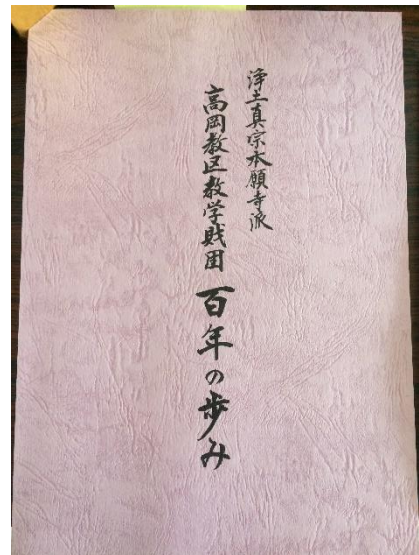 浄土真宗本願寺派
高岡教区教学財団 百年の歩み